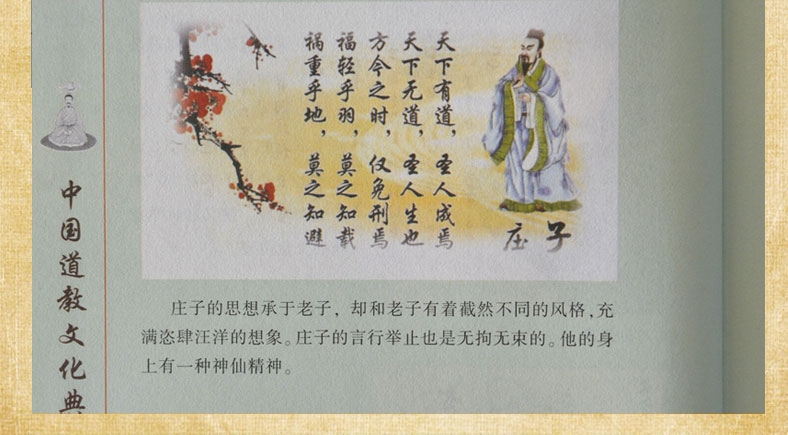 天下有道，圣人成焉
天下无道，圣人生也
方今之时，仅免刑焉
福轻乎羽，莫之知载
祸重乎地，莫之知避
庄子
庄子的思想承于老子，却和老子有着截然不同的风格，充
满恣肆汪洋的想象。庄子的言行举止也是无拘无束的。他的身
上有一种神仙精神。
中国道教文化典